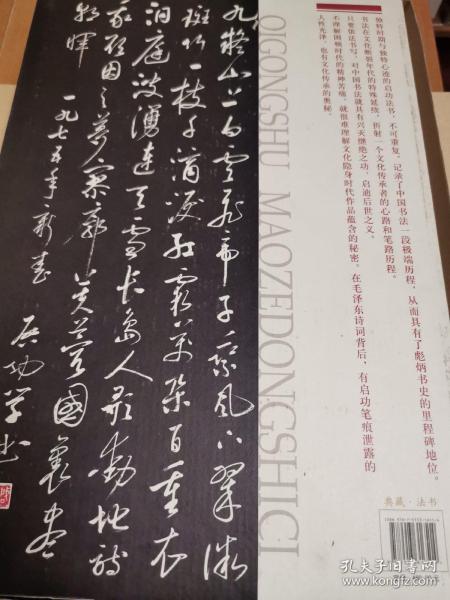 独特时期与独特心迹的启功法书,不可重复。记录了中国书法一段极端历程,从而具有了彪炳书史的里程碑地位。
书法在文化断裂年代的特殊延续,折射一个文化传承者的心路和笔路历程。
只要依法书写,对中国书法就具有兴灭继绝之功,启迪后世之义。
不理解困顿时代的精神苦痛,就很难理解文化隐身时代作品蕴含的秘密。在毛泽东诗词背后,有启功笔痕泄露的
人性光泽,也有文化传承的奥秘。
QIGONGSHU MAOZEDONGSHICI
九嶷山上白云飞帝子乘风下翠微
斑竹一枝千滴泪红霞万朵百重衣
洞庭波涌连天雪长岛人歌动地诗
我欲因之梦寥廓芙蓉國里尽
朝晖 一九七五年新春
启功学书
典藏·法书
孔夫子旧书网